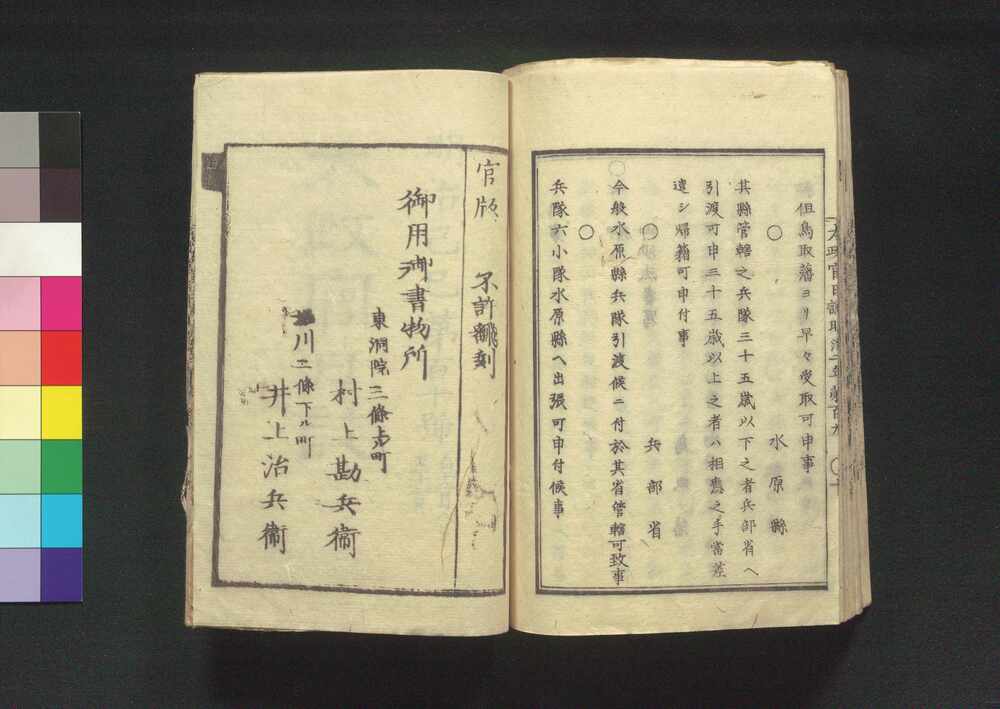 但鳥取藩ヨリ早々受取可申事
〇 水原縣
其縣管轄之兵隊三十五歳以下之者兵部省へ
引渡可申三十五歳以上之者ハ相應之手當差
遣シ帰籍可申付事
〇 兵部省
〇今般水原縣兵隊引渡候ニ付於其省管轄可致事
〇
兵隊六小隊水原縣へ出張可申付候事
官版 不許翻刻
御用御書物所
東洞院三條上ル町
村上勘兵衛
川二條下ル町
井上治兵衛